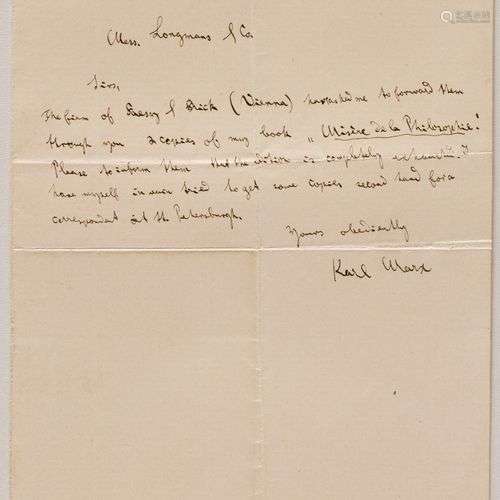 Mess. Longmans & Co.
Sirs,
The firm of & Brick (Vienna) has asked me to forward them
through you 2 copies of my book „Misère de la Philosophie".
Please to inform them that the edition is completely exhausted. I
have myself in vain tried to get some copies second hand for a
correspondent at St. Petersburgh.
Yours obediently
Karl Marx